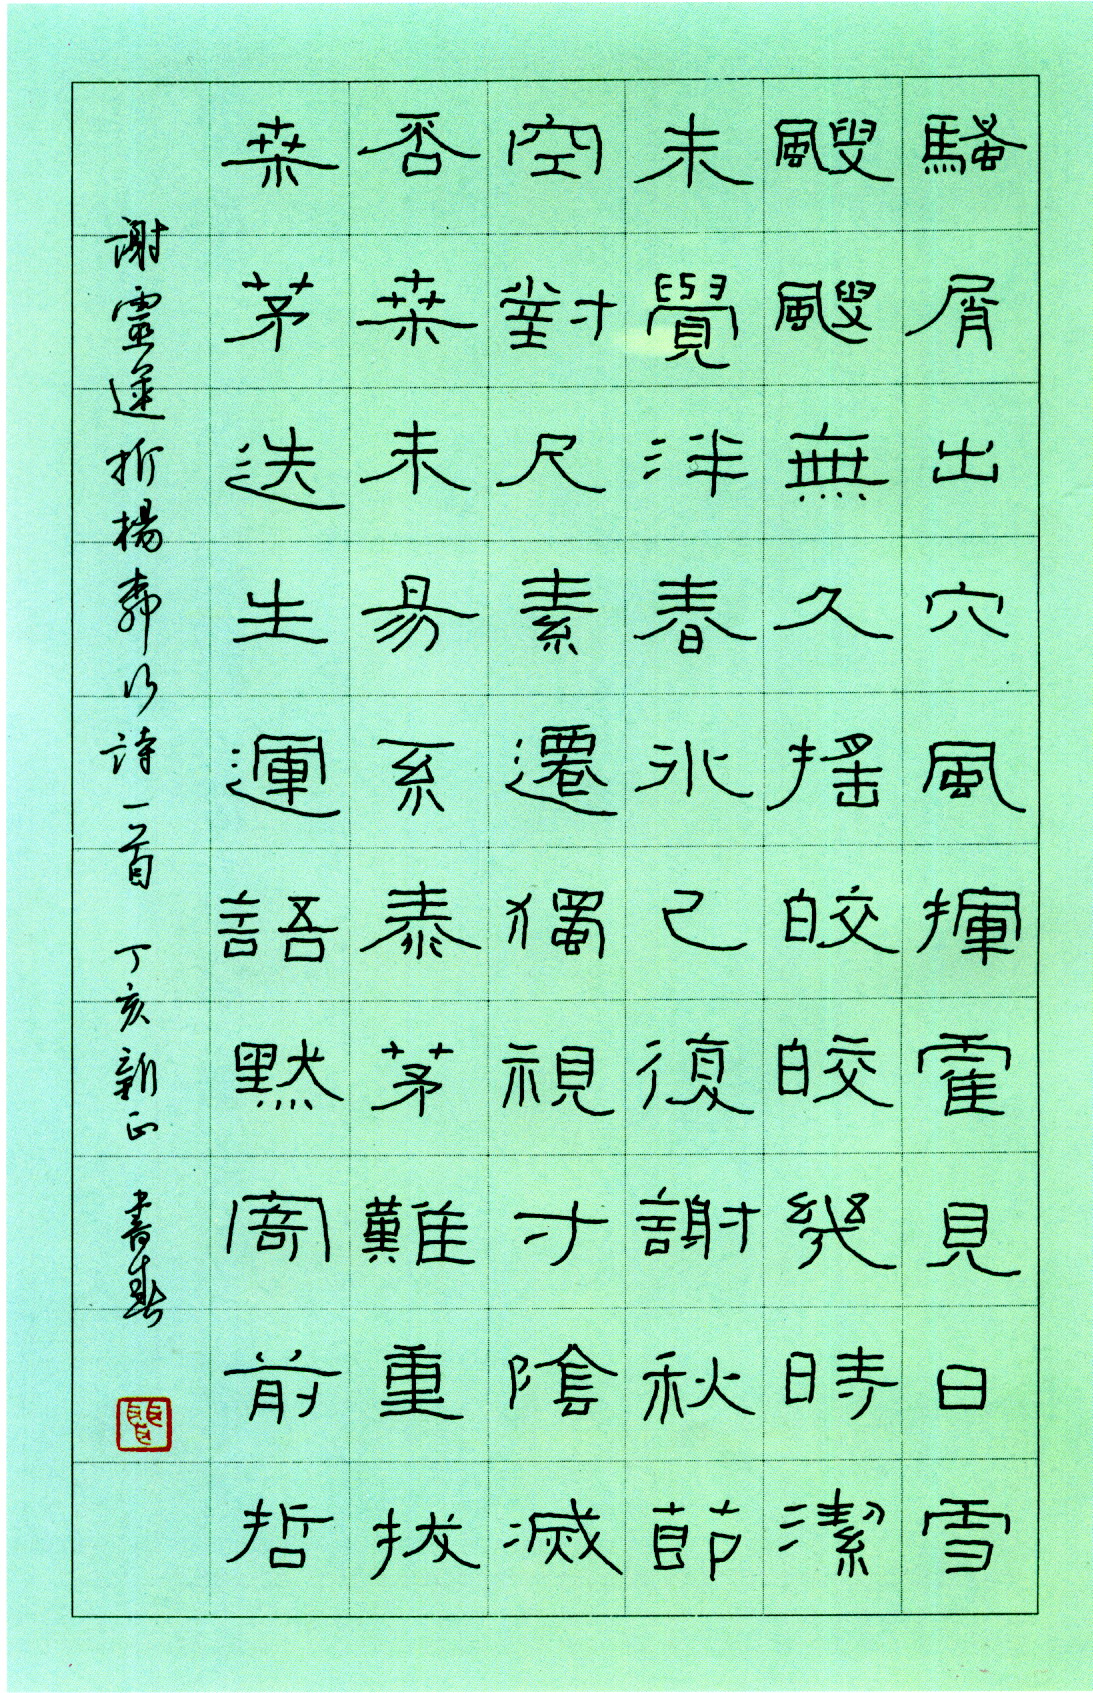 騷屑出穴風揮霍見日雪
颼颼無久搖皎皎幾時潔
未覺泮春冰已復謝秋節
空對尺素遷獨視寸陰滅
否桑未易系泰茅難重拔
桑茅迭生運語默寄前哲
謝靈運折楊柳行詩一首 丁亥新正 書